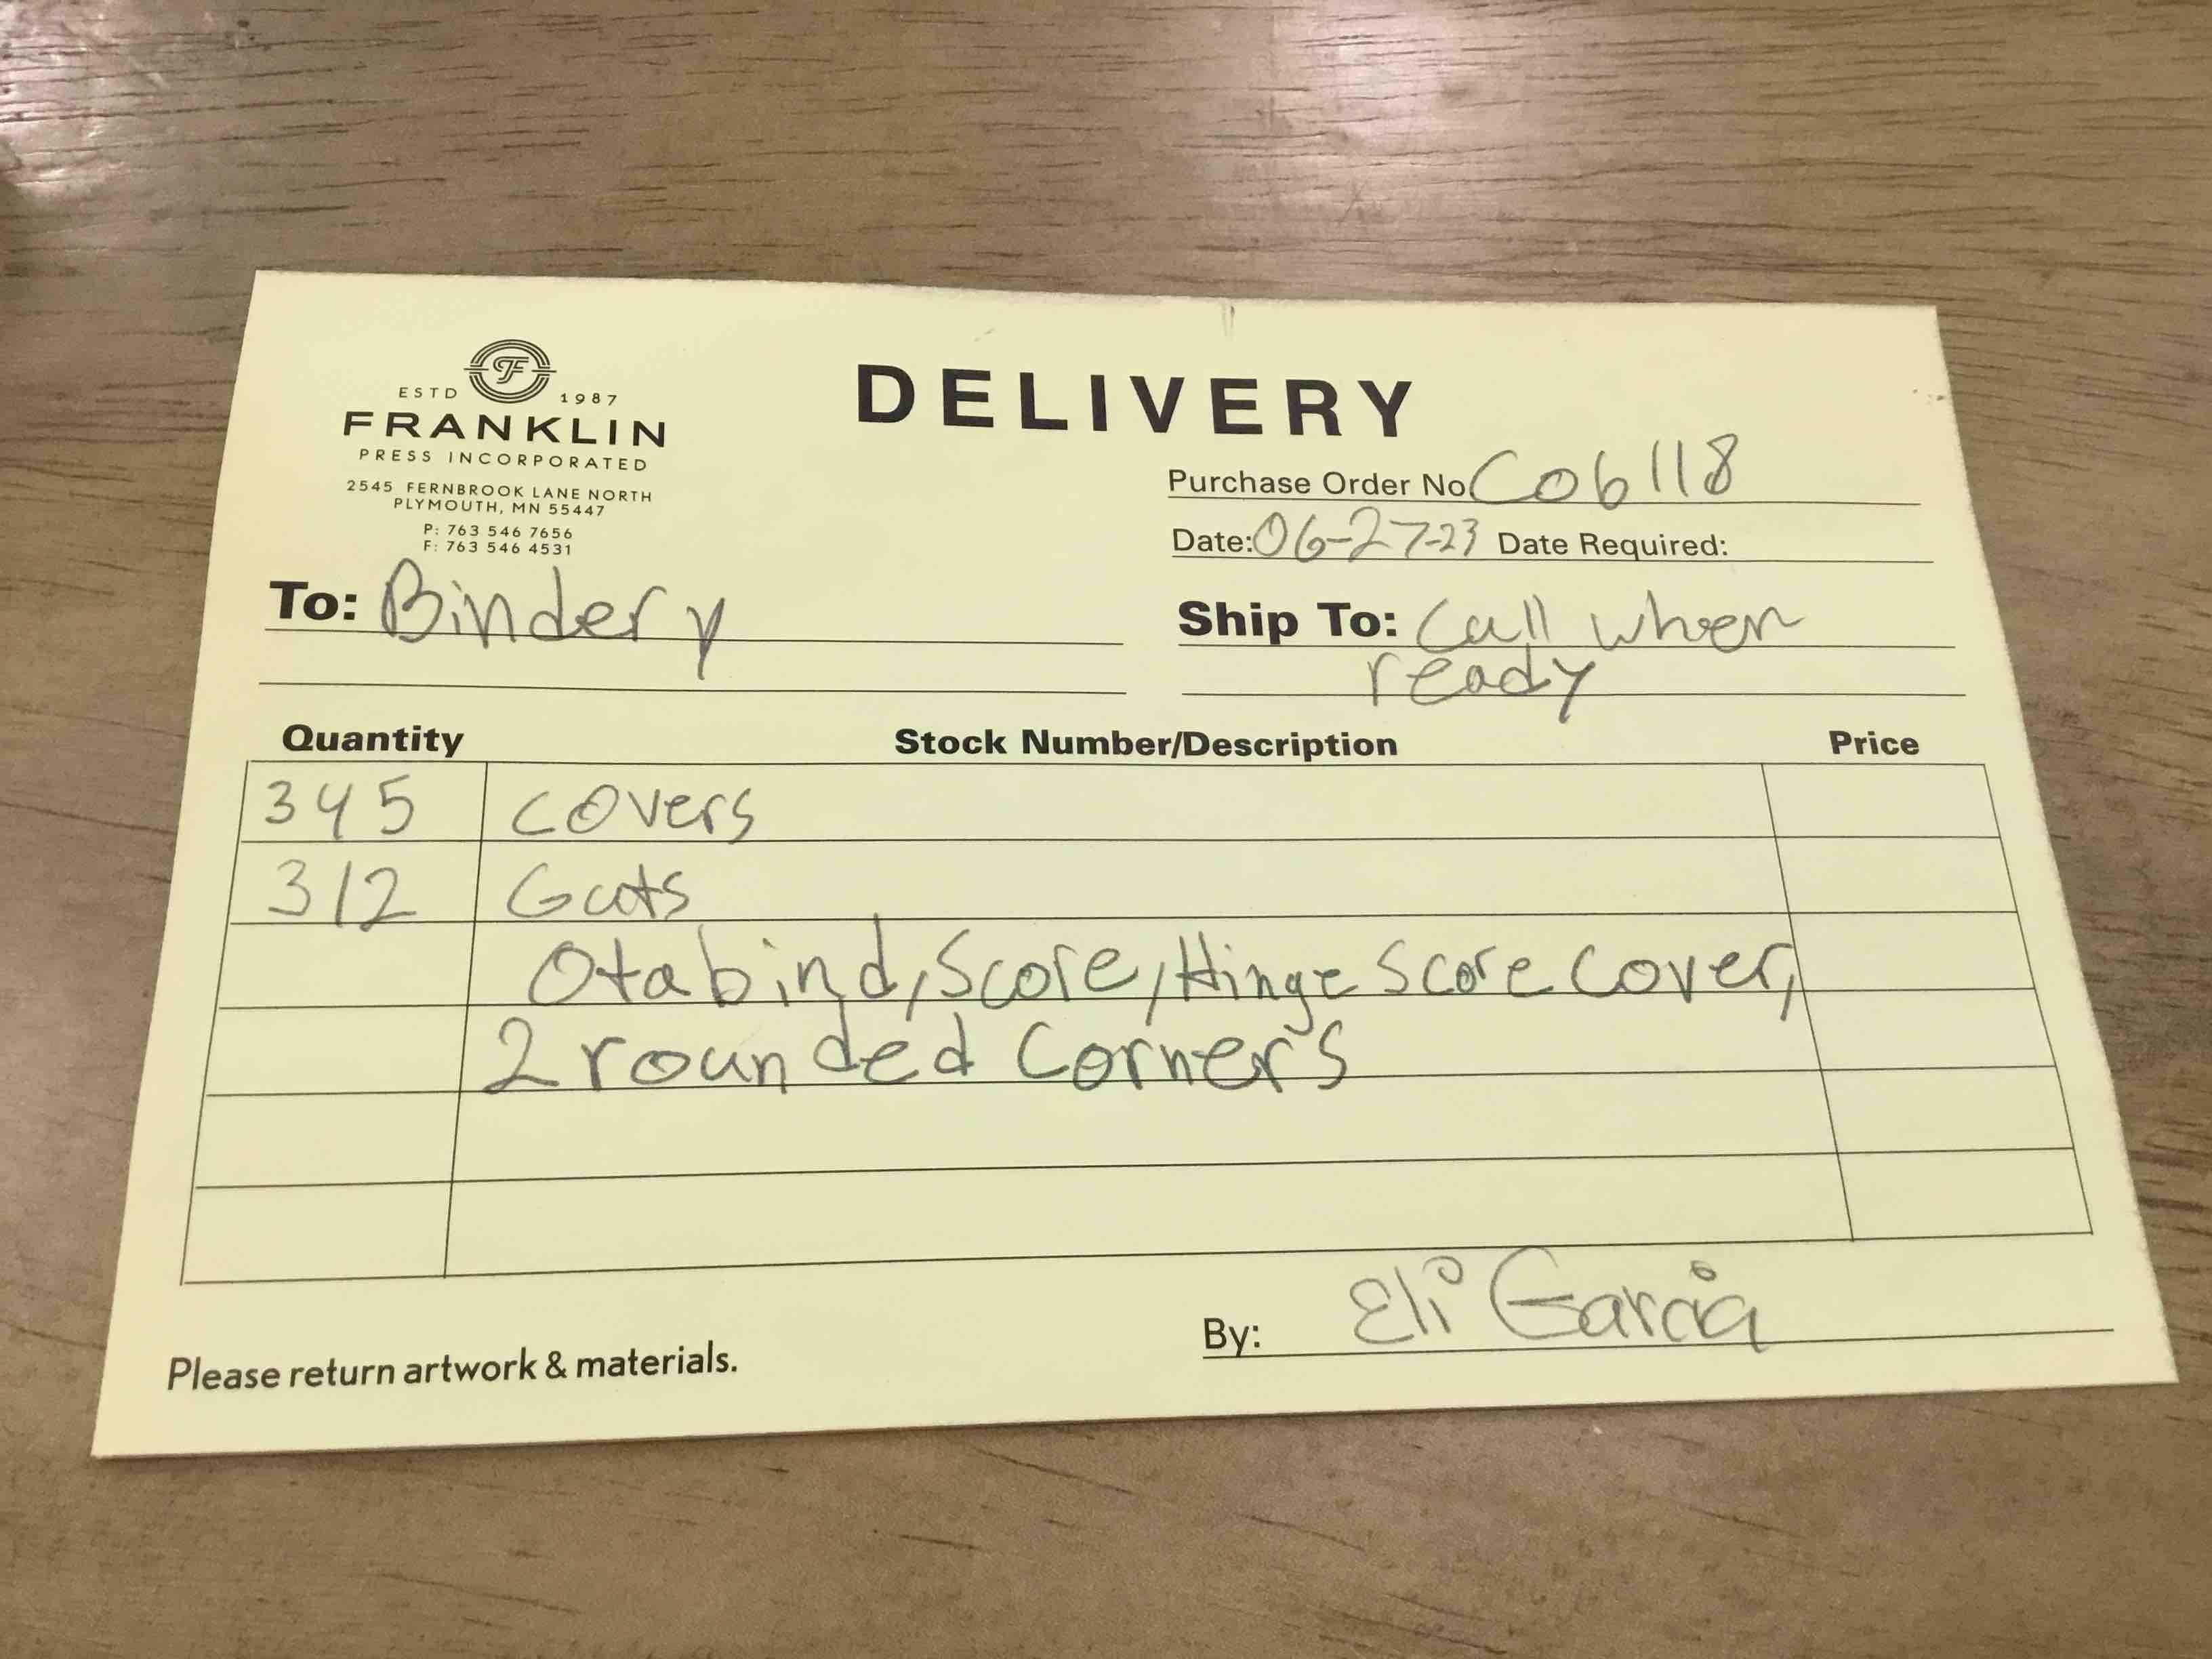 ESTD F 1987
FRANKLIN
PRESS INCORPORATED
2545 FERNBROOK LANE NORTH
PLYMOUTH, MN 55447
P: 763 546 7656
F: 763 546 4531
DELIVERY
Purchase Order No. C06118
Date: 06-27-23 Date Required:
To: Bindery
Ship To: Call when
ready
Quantity Stock Number/Description Price
345 covers
312 Guts
Otabind, Score, Hinge Score Cover,
2 rounded Corners
Please return artwork & materials.
By: Eli Garcia